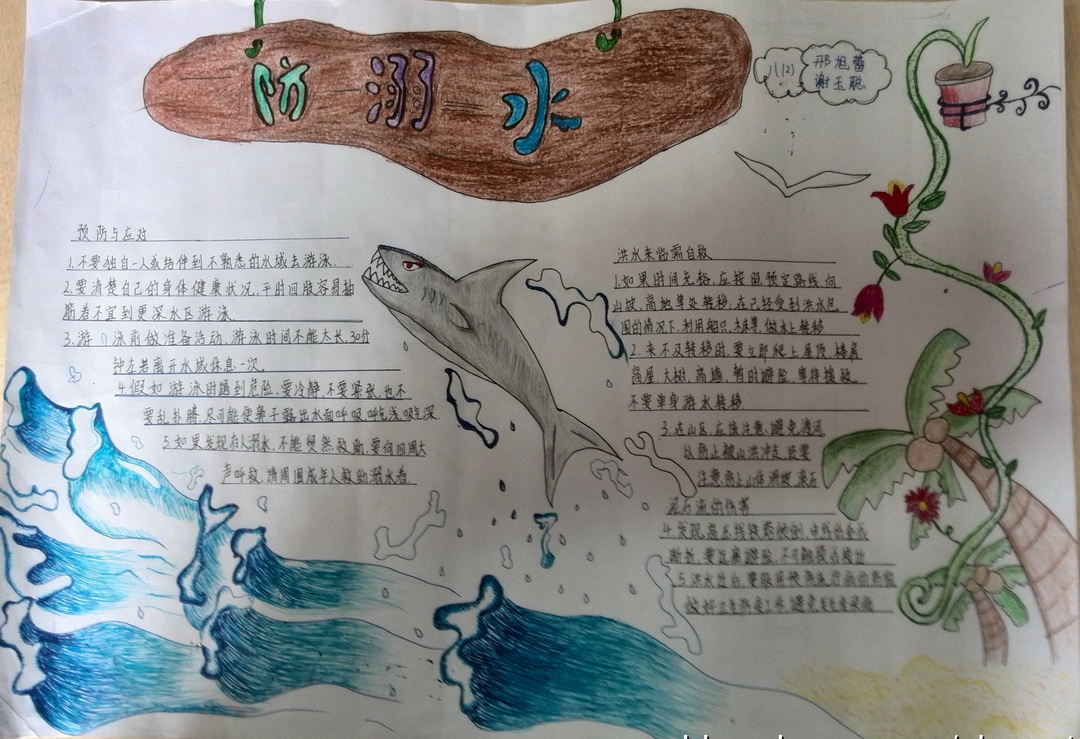 防溺水
八(2)
邢旭蕾
谢玉聪
预防与应对
1.不要独自一人或结伴到不熟悉的水域去游泳.
2.要清楚自己的身体健康状况,平时四肢容易抽
筋者不宜到更深水区游泳
3.游泳前做准备活动,游泳时间不能太长,30分
钟左右离开水域休息一次.
4.假如游泳时遇到危险,要冷静,不要紧张,也不
要乱扑腾,尽可能使鼻子露出水面呼吸,呼气浅,吸气深
5.如果发现有人溺水,不能贸然救助,要向四周大
声呼救,请周围成年人救助溺水者.
洪水来临需自救
1.如果时间充裕,应按照预定路线向
山坡,高地等处转移,在已经受到洪水包
围的情况下,利用船只,木排等,做水上转移
2.来不及转移时,要立即爬上屋顶,楼房
高屋,大树,高墙,暂时避险,等待援救,
不要单身游水转移
3.在山区,应该注意,避免渡河
以防止被山洪冲走,还要
注意防止山体滑坡,滚石
泥石流的伤害
4.发现高压线铁塔倾倒,电线低垂或
断折,要远离避险,不可触摸或接近
5.洪水过后,要服用预防流行病的药物
做好卫生防疫工作,避免发生传染病